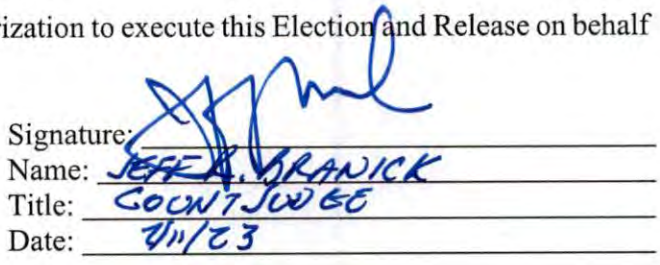 rization to execute this Election and Release on behalf
Signature:
Name: JEFF R. BRANICK
Title: COUNTJUDGE
Date: 7/11/23